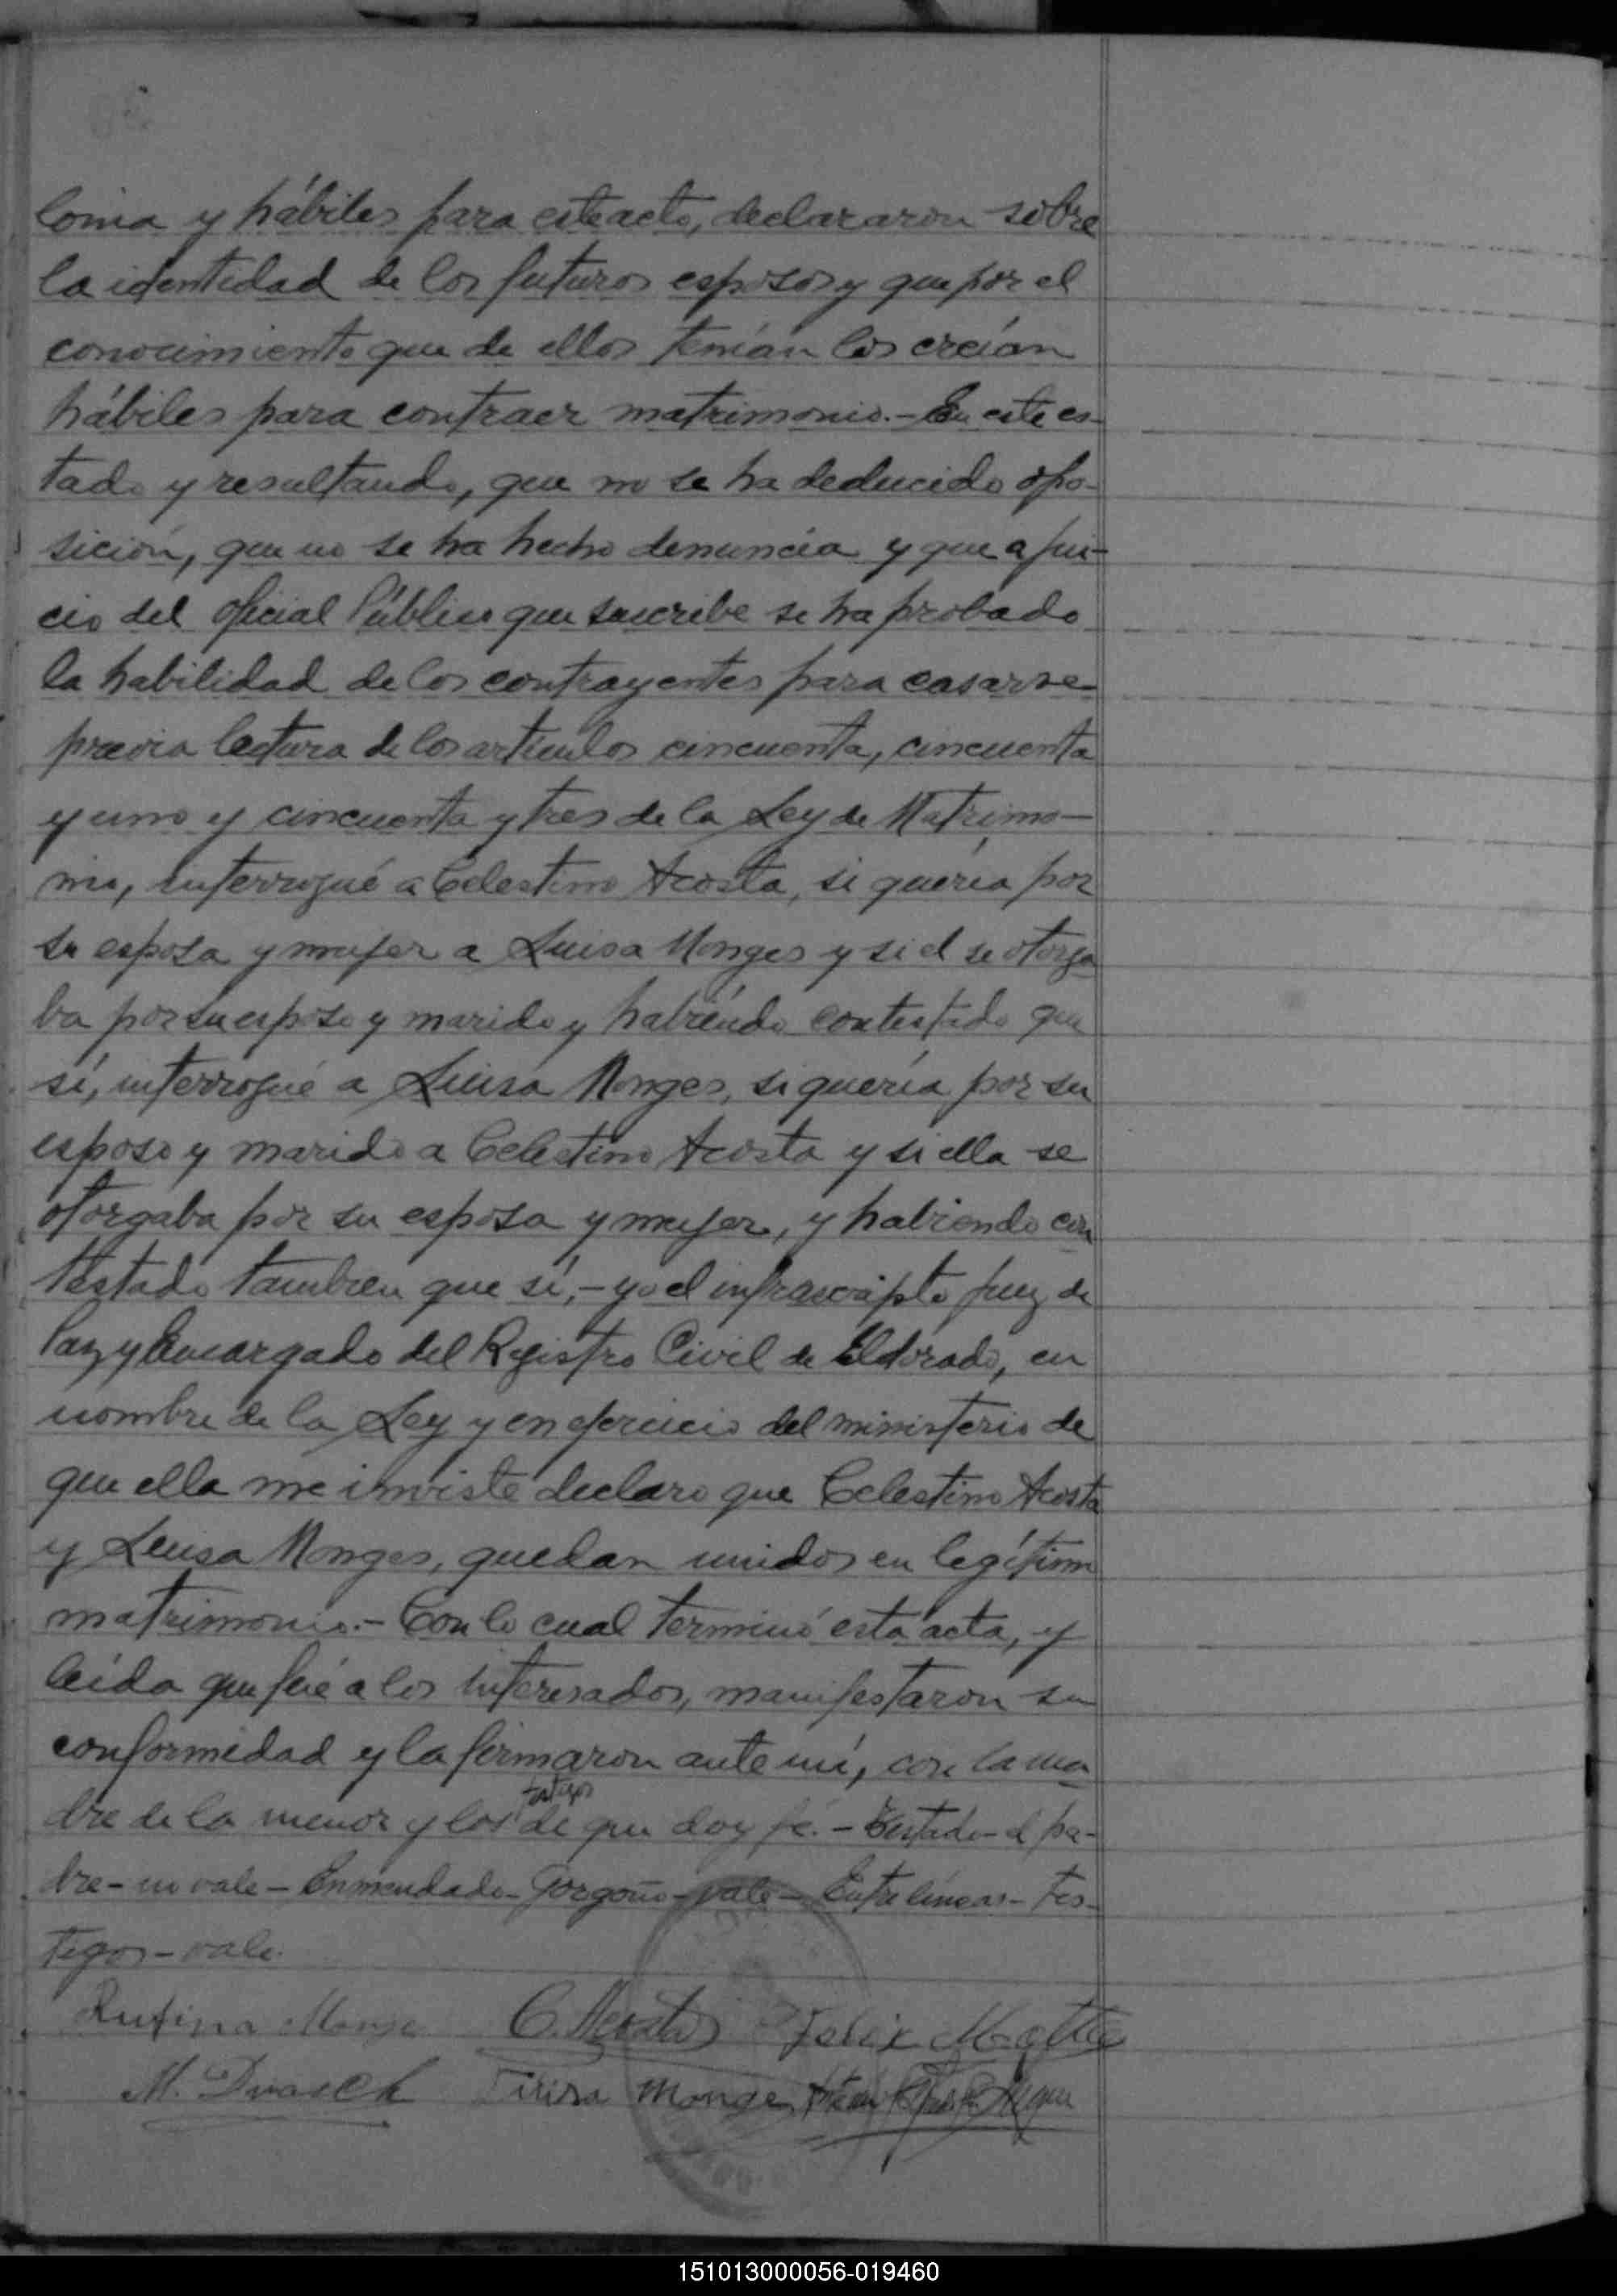 lonia y hábiles para este acto, declararon sobre
la identidad de los futuros esposos y que por el
conocimiento que de ellos tenían los creían
hábiles para contraer matrimonio.- En este es-
tado y resultando, que no se ha deducido opo-
sición, que no se ha hecho denuncia y que a jui-
cio del oficial Público que suscribe se ha probado
la habilidad de los contrayentes para casarse
previa lectura de los artículos cincuenta, cincuenta
y uno y cincuenta y tres de la Ley de Matrimo-
nio, interrogué a Celestino Acosta, si quería por
su esposa y mujer a Luisa Monges y si el se otorga
ba por su esposo y marido y habiendo contestado que
sí, interrogué a Luisa Monges, si quería por su
esposo y marido a Celestino Acosta y si ella se
otorgaba por su esposa y mujer, y habiendo con
testado tambien que sí,- yo el infrascripto Juez de
Paz y Encargado del Registro Civil de Eldorado, en
nombre de la Ley y en ejercicio del ministerio de
que ella me inviste declaro que Celestino Acosta
y Luisa Monges, quedan unidos en legítimo
matrimonio.- Con lo cual terminó esta acta, y
leída que fué a los interesados, manifestaron su
conformidad y la firmaron ante mí, con la ma
dre de la menor y los testigos de que doy fé.- Testado- el pa-
dre- no vale- Enmendado- Gorgoño- vale- Entrelíneas- tes-
tigos- vale.
Rufina Monge C. Acosta Felix
M. Dwasek Monges
151013000056-019460